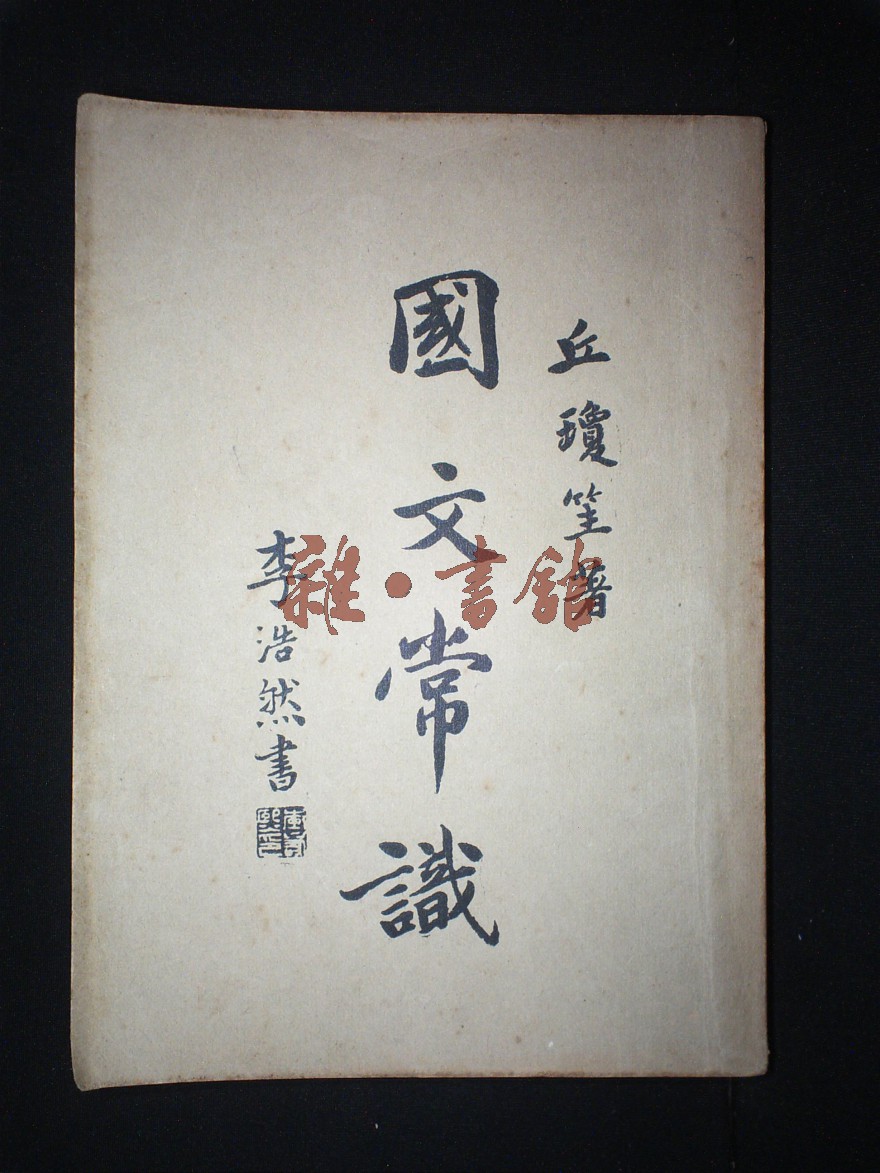 丘瓊笙著
國文常識
李浩然書
雜·書館